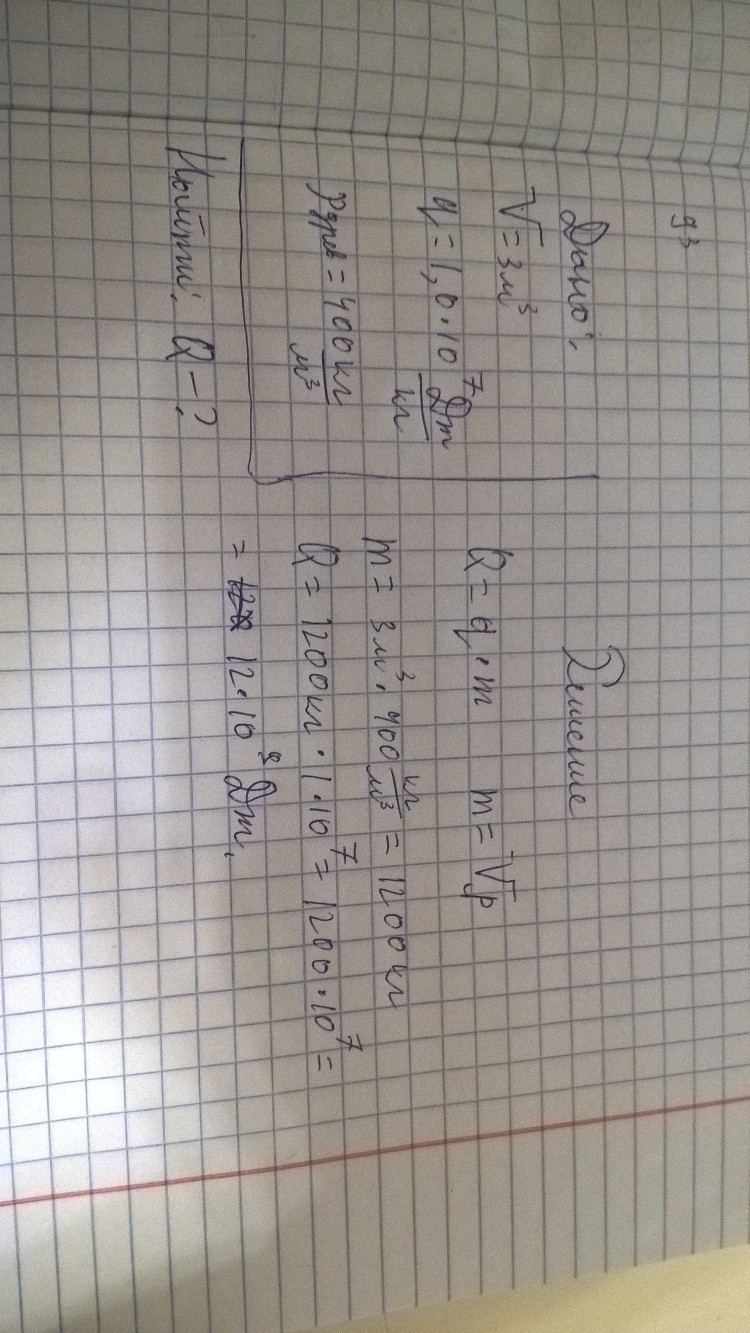 дз
Дано:
V = 3 м³
q = 1,0 · 10⁷ Дж/кг
ρдрев = 400 кг/м³
Найти: Q - ?
Решение
Q = q · m m = Vρ
m = 3 м³ · 400 кг/м³ = 1200 кг
Q = 1200 кг · 1 · 10⁷ = 1200 · 10⁷ =
= 12 · 10⁹ Дж.